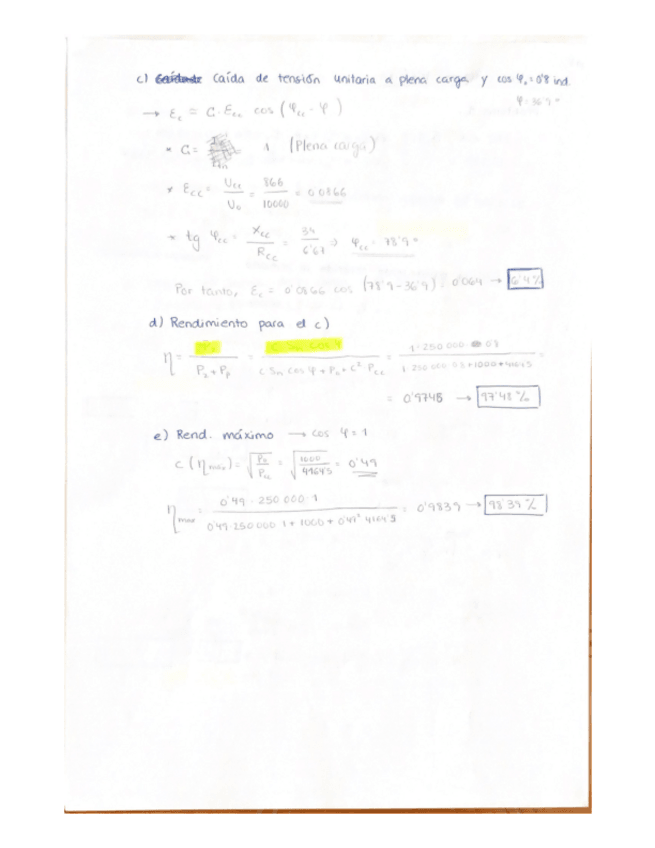 c) Caída de tensión unitaria a plena carga y cos φ₂ = 0'8 ind.
φ = 36'9 º
→ Ec = C · Ecc cos (φcc - φ)
* C = 1 (Plena carga)
* Ecc = Ucc / U₀ = 866 / 10000 = 0'0866
* tg φcc = Xcc / Rcc = 34 / 6'67 → φcc = 78'9 º
Por tanto, Ec = 0'0866 cos (78'9 - 36'9) = 0'064 → 6'4 %
d) Rendimiento para el c)
η = P₂ / (P₂ + Pp) = C Sn cos φ / (C Sn cos φ + P₀ + C² Pcc) = 1 · 250 000 · 0'8 / (1 · 250 000 · 0'8 + 1000 + 4164'5) =
= 0'9748 → 97'48 %
e) Rend. máximo → cos φ = 1
C (η max) = √(P₀ / Pcc) = √(1000 / 4164'5) = 0'49
η max = 0'49 · 250 000 · 1 / (0'49 · 250 000 · 1 + 1000 + 0'49² · 4164'5) = 0'9839 → 98'39 %